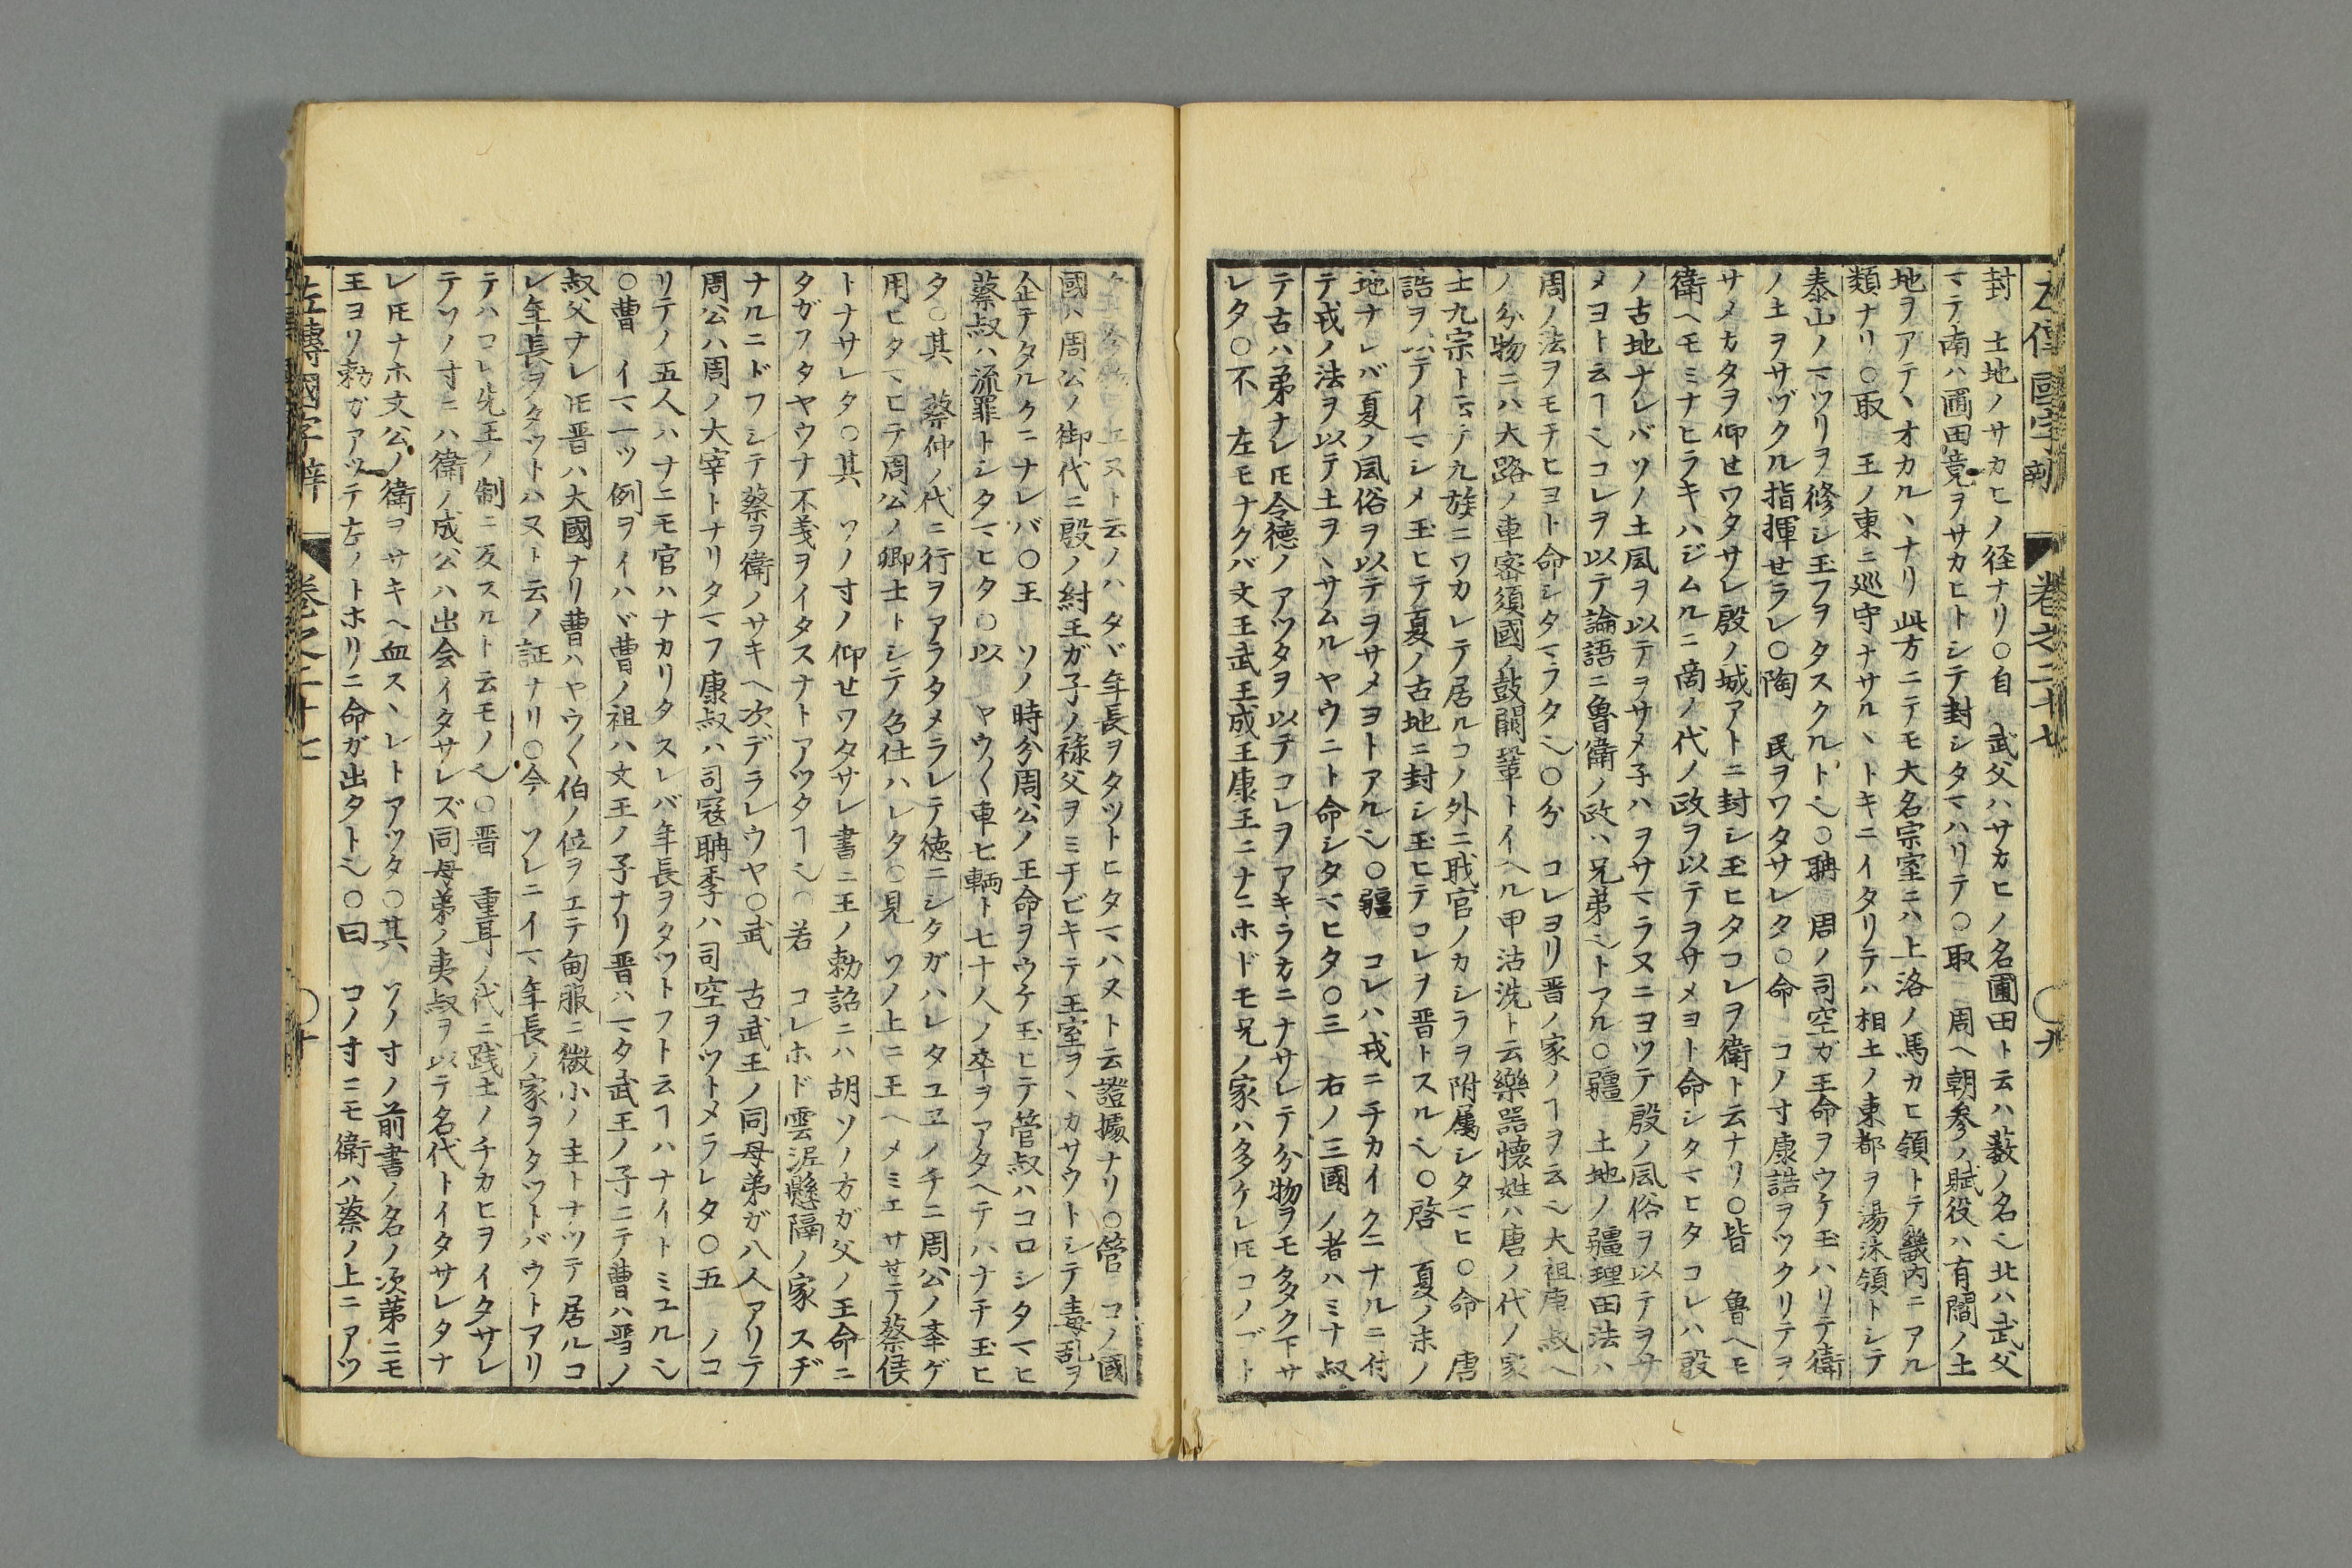 左傳國字辯 巻之二十七 ○九
封 土地ノサカヒノ径ナリ○自 武父ハサカヒノ名圃田ト云ハ薮ノ名也北ハ武父
マテ南ハ圃田竟ヲサカヒトシテ封シタマハリテ○取 周ヘ朝参ノ賦役ハ有閻ノ土
地ヲアテヽオカルヽナリ此方ニテモ大名宗室ニハ上洛ノ馬カヒ領トテ畿内ニアル
類ナリ○取 王ノ東ニ巡守ナサルヽトキニイタリテハ相土ノ東都ヲ湯沐領トシテ
泰山ノマツリヲ修シ玉フヲタスクルト也○聃 周ノ司空ガ王命ヲウケ玉ハリテ衛
ノ土ヲサヅクル指揮せラレ○陶 民ヲワタサレタ○命 コノ寸康誥ヲツクリテヲ
サメカタヲ仰せワタサレ殷ノ城アトニ封シ玉ヒタコレヲ衛ト云ナリ○皆 魯ヘモ
衛ヘモミナヒラキハジムルニ商ノ代ノ政ヲ以テヲサメヨト命シタマヒタコレハ殷
ノ古地ナレバソノ土風ヲ以テヲサメ子ハヲサマラヌニヨツテ殷ノ風俗ヲ以テヲサ
メヨト云ヿ也コレヲ以テ論語ニ魯衛ノ政ハ兄弟也トアル○疆 土地ノ疆理田法ハ
周ノ法ヲモチヒヨト命シタマフタ也○分 コレヨリ晋ノ家ノヿヲ云也大祖唐叔ヘ
ノ分物ニハ大路ノ車密須國ノ鼓闕鞏トイヘル甲沽洗ト云樂器懐姓ハ唐ノ代ノ家
士九宗ト云テ九族ニワカレテ居ルコノ外ニ戝官ノカシラヲ附属シタマヒ○命 唐
誥ヲ以テイマシメ玉ヒテ夏ノ古地ニ封シ玉ヒテコレヲ晋トスル也○啓 夏ノ末ノ
地ナレバ夏ノ風俗ヲ以テヲサメヨトアル也○疆 コレハ戎ニチカイクニナルニ付
テ戎ノ法ヲ以テ土ヲヽサムルヤウニト命シタマヒタ○三 右ノ三國ノ者ハミナ叔
テ古ハ弟ナレ𪜈令徳ノアツタヲ以テコレヲアキラカニナサレテ分物ヲモタクタ下サ
レタ○不 左モナクバ文王武王成王康王ニナニホドモ兄ノ家ハ多ケレ𪜈コノゴト
ヌト云ノハタヾ年長ヲタツトヒタマハヌト云證據ナリ○管 コノ國
國ハ周公ノ御代ニ殷ノ紂王ガ子ノ祿父ヲミチビキテ王室ヲヽカサウトシテ毒乱ヲ
企テタルクニナレバ○王 ソノ時分周公ノ王命ヲウケ玉ヒテ管叔ハコロシタマヒ
蔡叔ハ流罪トシタマヒタ○以 ヤウ〱車ヒ輌ト七十人ノ卒ヲアタヘテハナチ玉ヒ
タ○其 蔡仲ノ代ニ行ヲアラタメラレテ徳ニシタガハレタユヱノチニ周公ノ率ゲ
用ヒタマヒテ周公ノ卿士トシテ召仕ハレタ○見 ソノ上ニ王ヘメミエサセテ蔡侯
トナサレタ○其 ソノ寸ノ仰せワタサレ書ニ王ノ勅詔ニハ胡ソノ方ガ父ノ王命ニ
タガフタヤウナ不義ヲイタスナトアツタヿ也○若 コレホド雲泥懸隔ノ家スヂ
ナルニドフシテ蔡ヲ衛ノサキヘ次デラレウヤ○武 古武王ノ同母弟ガ八人アリテ
周公ハ周ノ大宰トナリタマフ康叔ハ司寇聃季ハ司空ヲツトメラレタ○五 ノコ
リテノ五人ハナニモ官ハナカリタスレバ年長ヲタツトフト云ヿハナイトミユル也
○曹 イマ一ツ例ヲイハヾ曹ノ祖ハ文王ノ子ナリ晋ハマタ武王ノ子ニテ曹ハ晋ノ
叔父ナレ𪜈晋ハ大國ナリ曹ハヤウ〱伯ノ位ヲエテ甸服ニ微小ノ主トナツテ居ルコ
レ年長ヲタツトハヌト云ノ証ナリ○今 ソレニイマ年長ノ家ヲタツトバウトアリ
テハコレ先王ノ制ニ反スルト云モノ也○晋 重耳ノ代ニ践土ノチカヒヲイタサレ
テソノ寸ニハ衛ノ成公ハ出会イタサレズ同母弟ノ夷叔ヲ以テ名代トイタサレタナ
レ𪜈ナホ文公ノ衛ヲサキヘ血スヽレトアツタ○其 ソノ寸ノ前書ノ名ノ次第ニモ
王ヨリ勅ガアツテ左ノトホリニ命ガ出タト也○曰 コノ寸ニモ衛ハ蔡ノ上ニアツ
左傳國字辯 巻之二十七 ○十